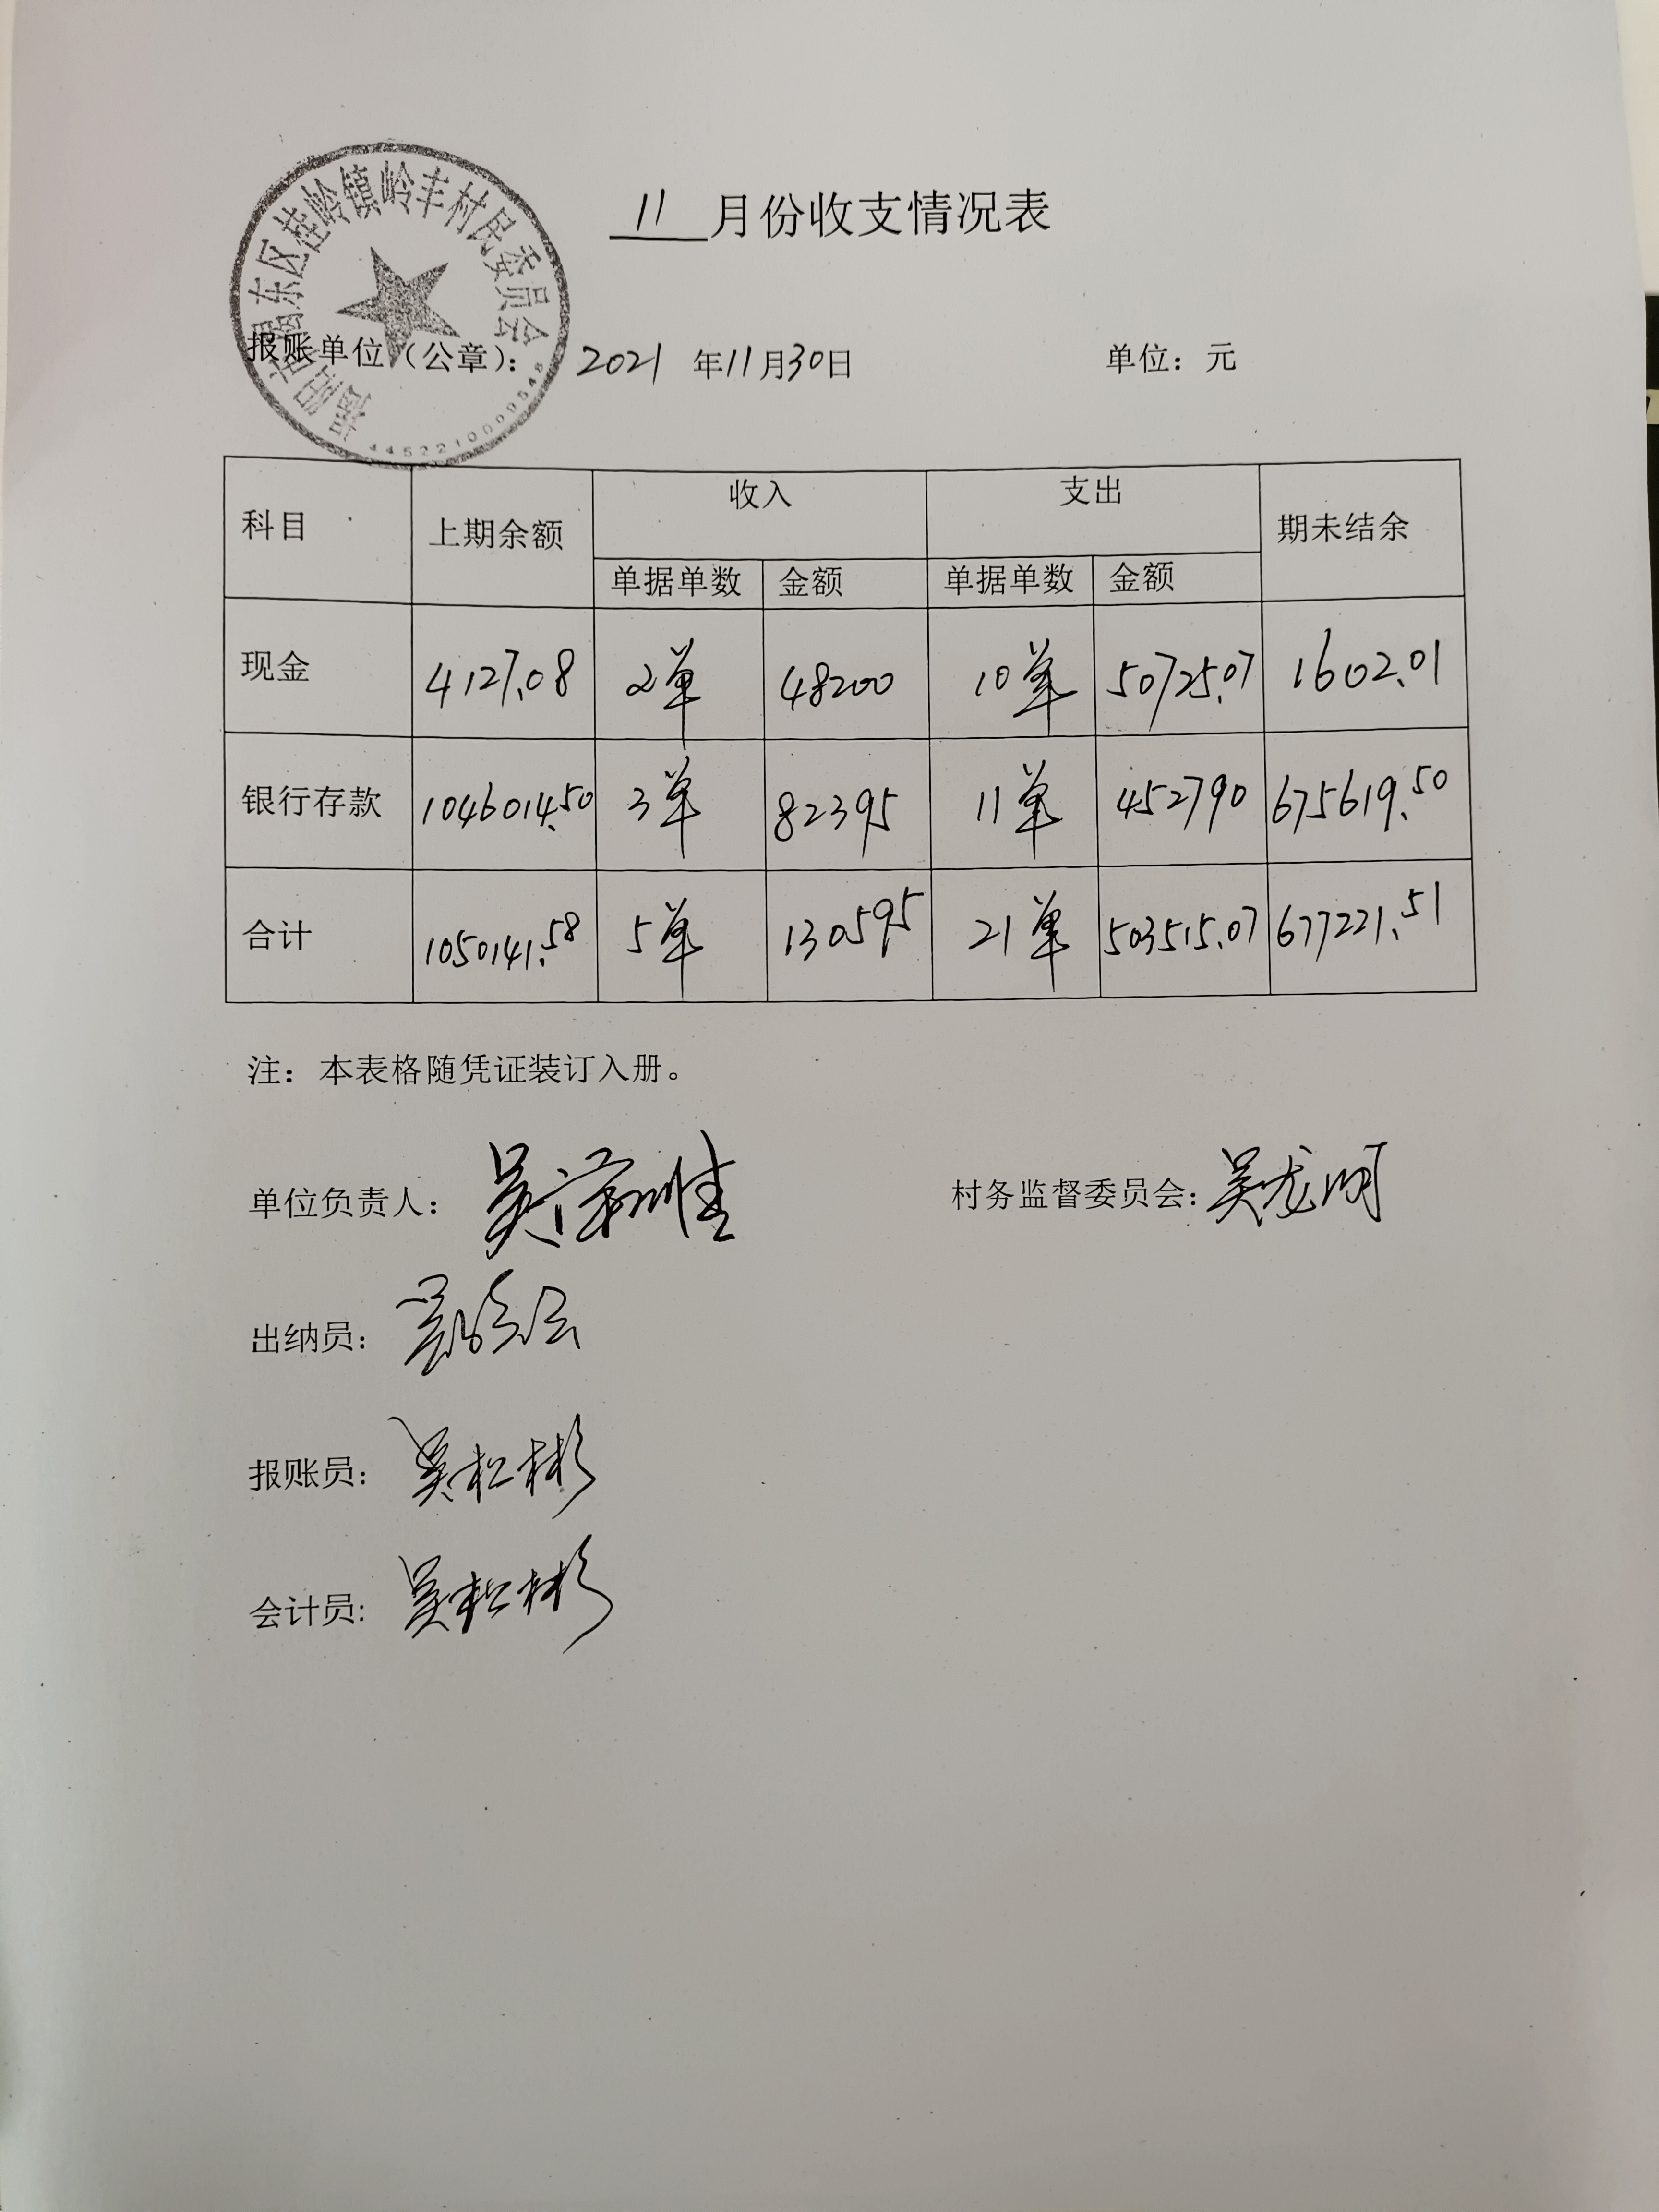 揭阳市揭东区桂岭镇岭丰村民委员会
4452210009548
11 月份收支情况表
报账单位（公章）： 2021 年11月30日 单位：元
科目 上期余额 收入 支出 期未结余
单据单数 金额 单据单数 金额
现金 4127.08 2单 48200 10单 50725.07 1602.01
银行存款 1046014.50 3单 82395 11单 452790 675619.50
合计 1050141.58 5单 130595 21单 503515.07 677221.51
注：本表格随凭证装订入册。
单位负责人：吴 村务监督委员会：吴龙明
出纳员：吴
报账员：吴松彬
会计员：吴松彬